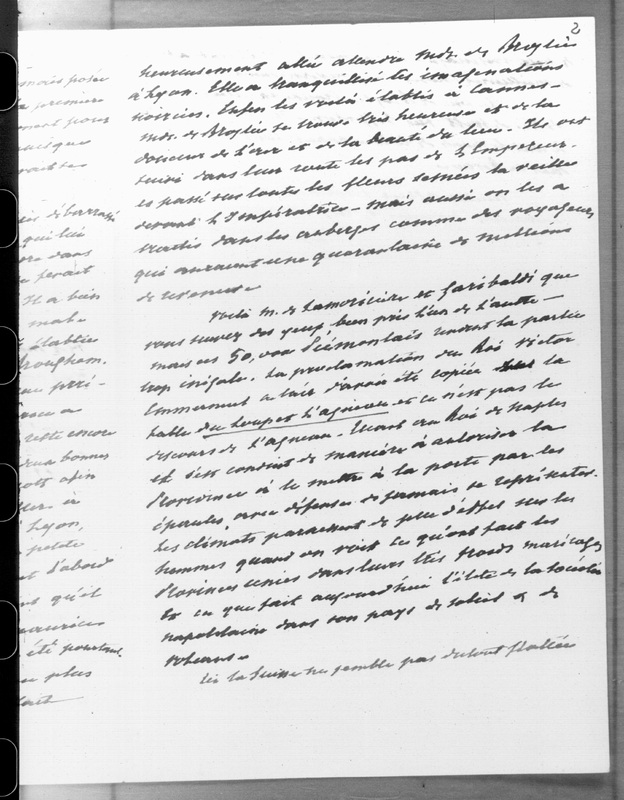 2
heureusement allée attendre Mde. de Broglie
à Lyon. Elle a tranquillisé les imaginations
noircies. Enfin les voilà établis à Cannes –
Mde. de Broglie se trouve très heureuse et de la
douceur de l'air et de la beauté du lieu. Ils ont
suivi dans leur route les pas de l'Empereur
et passé sur toutes les fleurs semées la veille
devant l'Impératrice – mais aussi on les a
traités dans les auberges comme des voyageurs
qui auraient une quarantaine de millions
de revenu.
Voilà M. de Lamoricière et Garibaldi que
vous suivez des yeux bien près l'un de l'autre –
mais ces 50,000 Piémontais rendent la partie
trop inégale. La proclamation du Roi Victor
Emmanuel a l'air d'avoir été copiée la
fable du loup et l'agneau et ce n'est pas le
discours de l'agneau. Quant au Roi de Naples
il s'est conduit de manière à autoriser la
Providence à le mettre à la porte par les
épaules, avec défense de jamais se représenter.
Les climats paraissent de peu d'effet sur les
hommes quand on voit ce qu'ont fait les
Provinces unies dans leurs très froids marécages
et ce que fait aujourd'hui l'élite de la société
napolitaine dans son pays de soleil & de
volcans.
Ici la Suisse ne semble pas du tout flattée
mais posée
a première
ment pour
débarrassé
qui lui
ore dans
ferait
Il a bien
male
établie
Brougham.
que pri-
reste encore
deux bonnes
afin
à
Lyon,
petite
et d'abord
qu'il
été pourtant
plus
fait